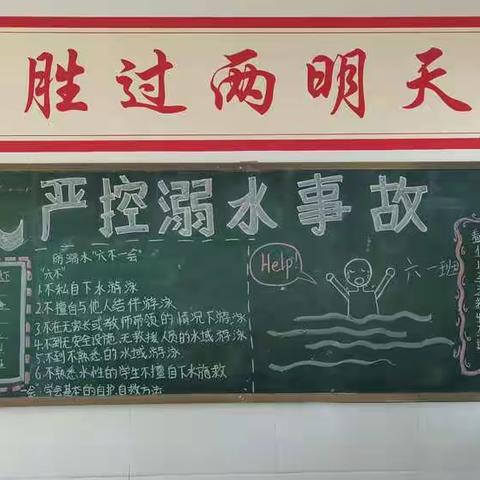 胜过两明天
严控溺水事故
防溺水"六不一会"
"六不"
1.不私自下水游泳
2.不擅自与他人结伴游泳
3.不在无家长或教师带领的情况下游泳
4.不到无安全设施、无救援人员的水域游泳
5.不到不熟悉的水域游泳
6.不熟悉水性的学生不擅自下水施救
一会:学会基本的自护、自救方法
Help!
六一班